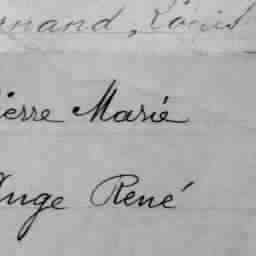 ernand, Louis
ierre Marie
Ange René